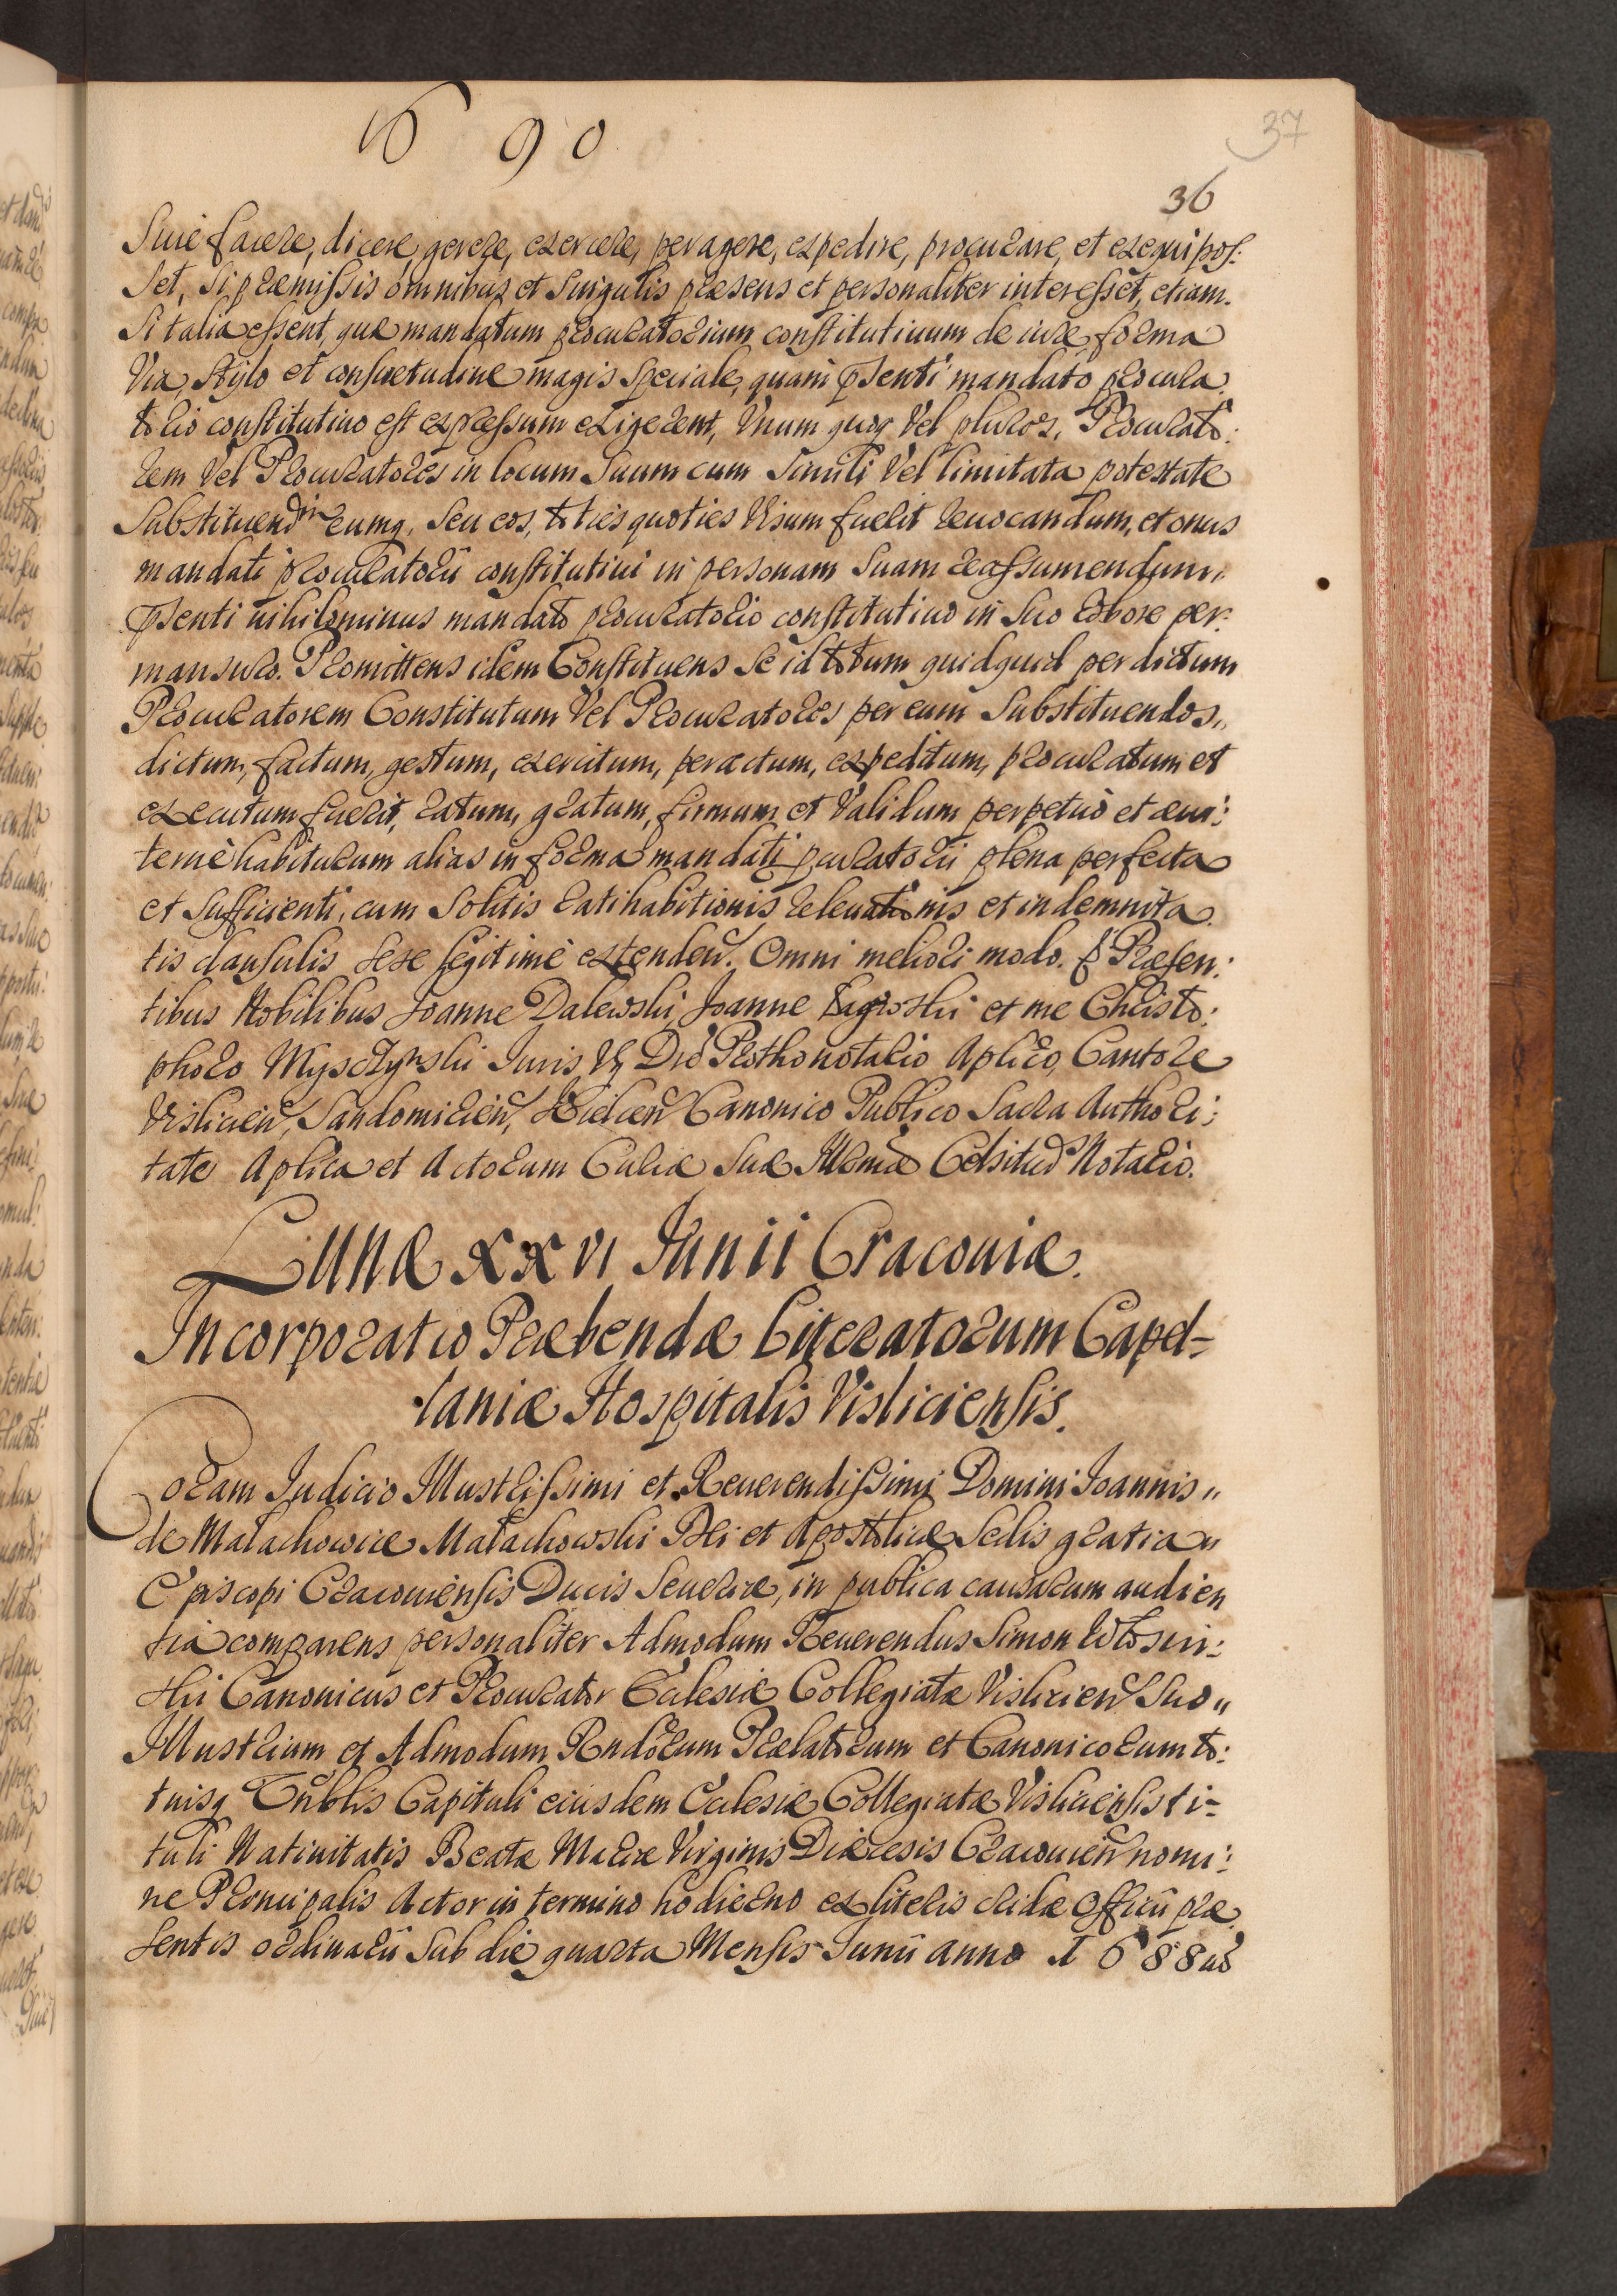 1690
37
36
Siuè facere, dicere, gerere, exercere, peragere, expedire, procurare, et exequi pos:
set, si præmissis omnibus et singulis præsens et personaliter interesset, etiam
si talia essent, quæ mandatum procuratorium constitutiuum de iure forma
via, stylo et consuetudine magis speciale, quam psenti mandato procura
torio constitutiuo est expressum exigerent, Unum quoq vel plures, Procurato:
rem vel Procuratores in locum suum cum simili vel limitata potestate
substituend eumq, seu eos, toties quoties visum fuerit reuocandum, et onus
mandati procuratorii constitutiui in personam suam reassumendum,
psenti nihilominus mandato procuratorio constitutiuo in suo robore per:
mansuro. Promittens idem Constituens se id totum quidquid per dictum
Procuratorem Constitutum vel Procuratores per eum substituendos,
dictum, factum, gestum, exercitum, peractum, expeditum, procuratum et
executum fuerit, ratum, gratum, firmum et validum perpetuò et æui:
ternè habiturum alias in forma mandati pcuratorii plena perfecta
et sufficienti, cum solitis ratihabitionis releuationis et indemnita
tis clausulis sese legitimè extenden. Omni meliori modo. Præsen:
tibus Nobilibus Joanne Dalewski, Joanne et me Christo:
phoro Mysczynski Iuris V Dre Prothonotario Aplico, Cantore
Vislicien, Sandomirien, Kielcen Canonico Publico Sacra Authori:
tate Aplica et Actorum Curiæ Suæ Illmæ Celsitud Notario.
Lunæ XXVI Junii Cracouiæ.
Incorporatio Præbendæ Literatorum Capel-
laniæ Hospitalis Visliciensis.
Coram Iudicio Illustrissimi et Reuerendissimi Domini Ioannis
de Małachowice Małachowski Dei et Apostolicæ Sedis gratia
Episcopi Cracouiensis Ducis Seueriæ, in publica causarum audien
tia comparens personaliter Admodum Reuerendus Simon
ski Canonicus et Procurator Ecclesiæ Collegiatæ Vislicien suo
Illustrium et Admodum Rndorum Prælatorum et Canonicorum to:
tiusq Vnblis Capituli eiusdem Ecclesiæ Collegiatæ Visliciensis ti-
tuli Natiuitatis Beatæ Mariæ Virginis Diæcesis Cracouien nomi:
ne Principalis Actor in termino hodierno ex literis cridæ Officii præ
sentis ordinarii sub die quarta Mensis Iunii anno 1688 ad